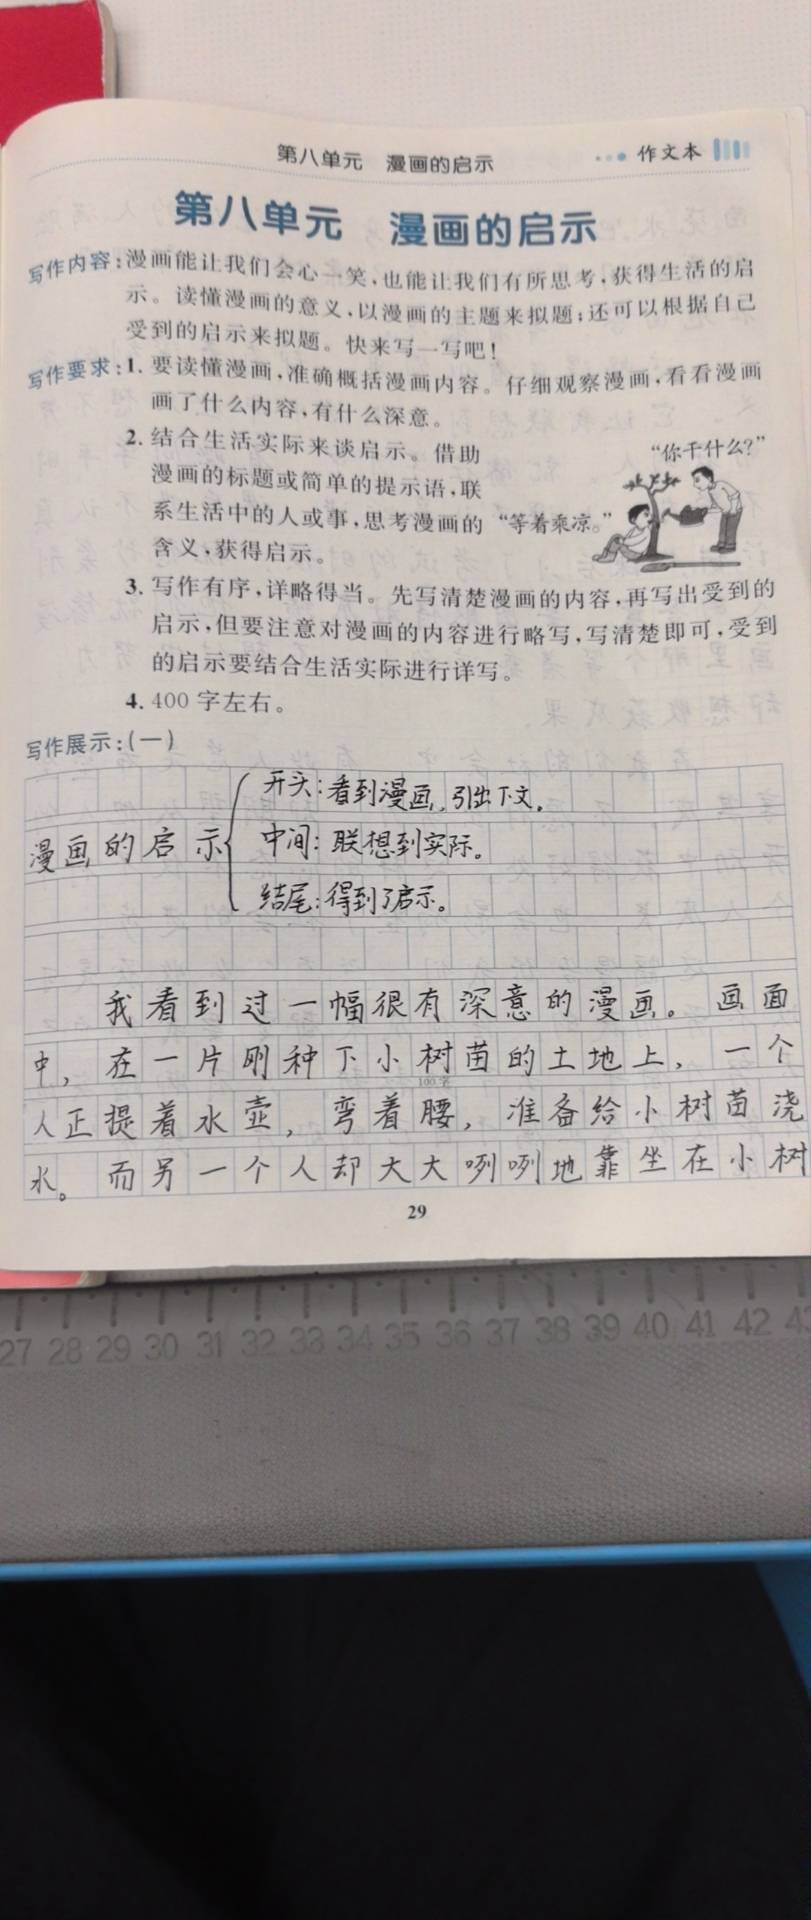 第八单元 漫画的启示 作文本
第八单元 漫画的启示
写作内容:漫画能让我们会心一笑,也能让我们有所思考,获得生活的启
示。读懂漫画的意义,以漫画的主题来拟题;还可以根据自己
受到的启示来拟题。快来写一写吧!
写作要求:1. 要读懂漫画,准确概括漫画内容。仔细观察漫画,看看漫画
画了什么内容,有什么深意。
2. 结合生活实际来谈启示。借助
漫画的标题或简单的提示语,联
系生活中的人或事,思考漫画的
含义,获得启示。
“你干什么?”
“等着乘凉。”
3. 写作有序,详略得当。先写清楚漫画的内容,再写出受到的
启示,但要注意对漫画的内容进行略写,写清楚即可,受到
的启示要结合生活实际进行详写。
4. 400字左右。
写作展示:(一)
漫画的启示
开头:看到漫画,引出下文。
中间:联想到实际。
结尾:得到了启示。
我看到过一幅很有深意的漫画。画面
中,在一片刚种下小树苗的土地上,一个
100字
人正提着水壶,弯着腰,准备给小树苗浇
水。而另一个人却大大咧咧地靠坐在小树
29
27 28 29 30 31 32 33 34 35 36 37 38 39 40 41 42